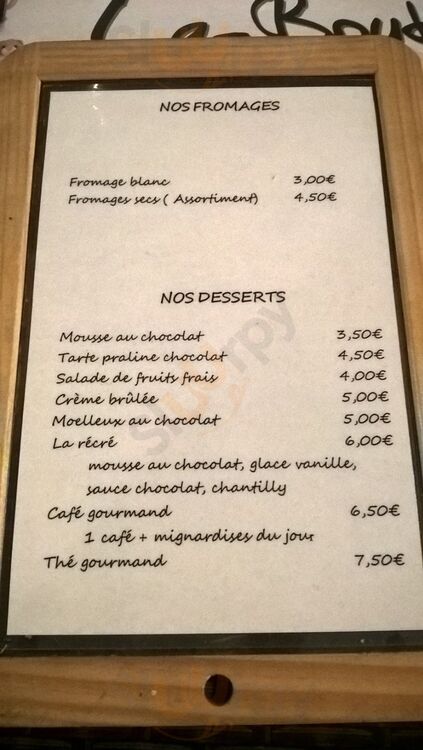 NOS FROMAGES
Fromage blanc 3,00€
Fromages secs ( Assortiment) 4,50€
NOS DESSERTS
Mousse au chocolat 3,50€
Tarte praline chocolat 4,50€
Salade de fruits frais 4,00€
Crème brûlée 5,00€
Moelleux au chocolat 5,00€
La récré 6,00€
mousse au chocolat, glace vanille,
sauce chocolat, chantilly
Café gourmand 6,50€
1 café + mignardises du jour
Thé gourmand 7,50€